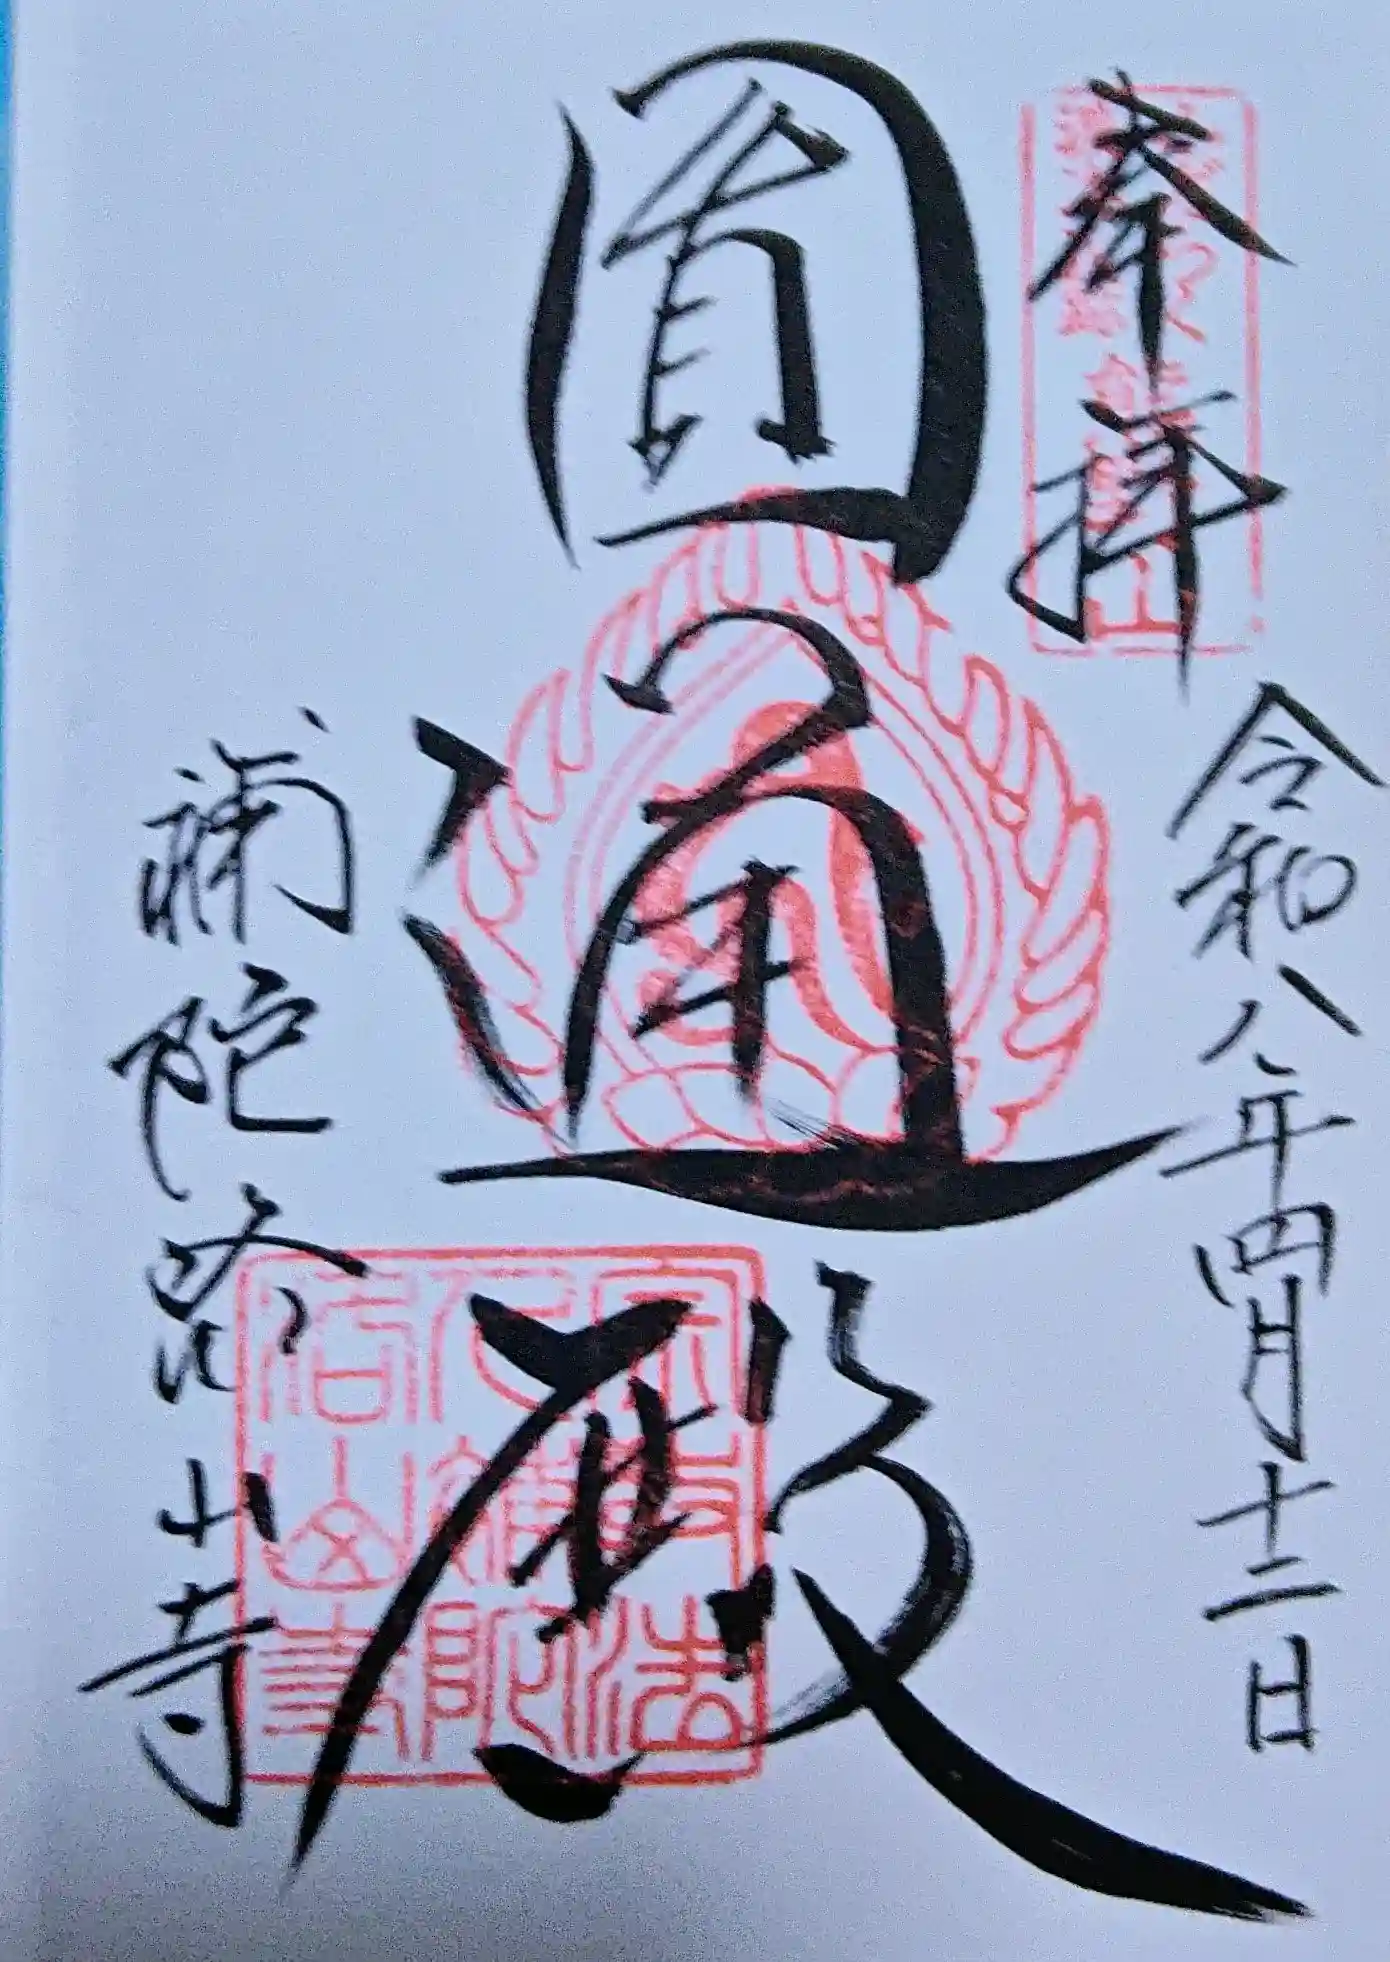 奉拝
令和八年四月十二日
圓通殿
補陀落山寺